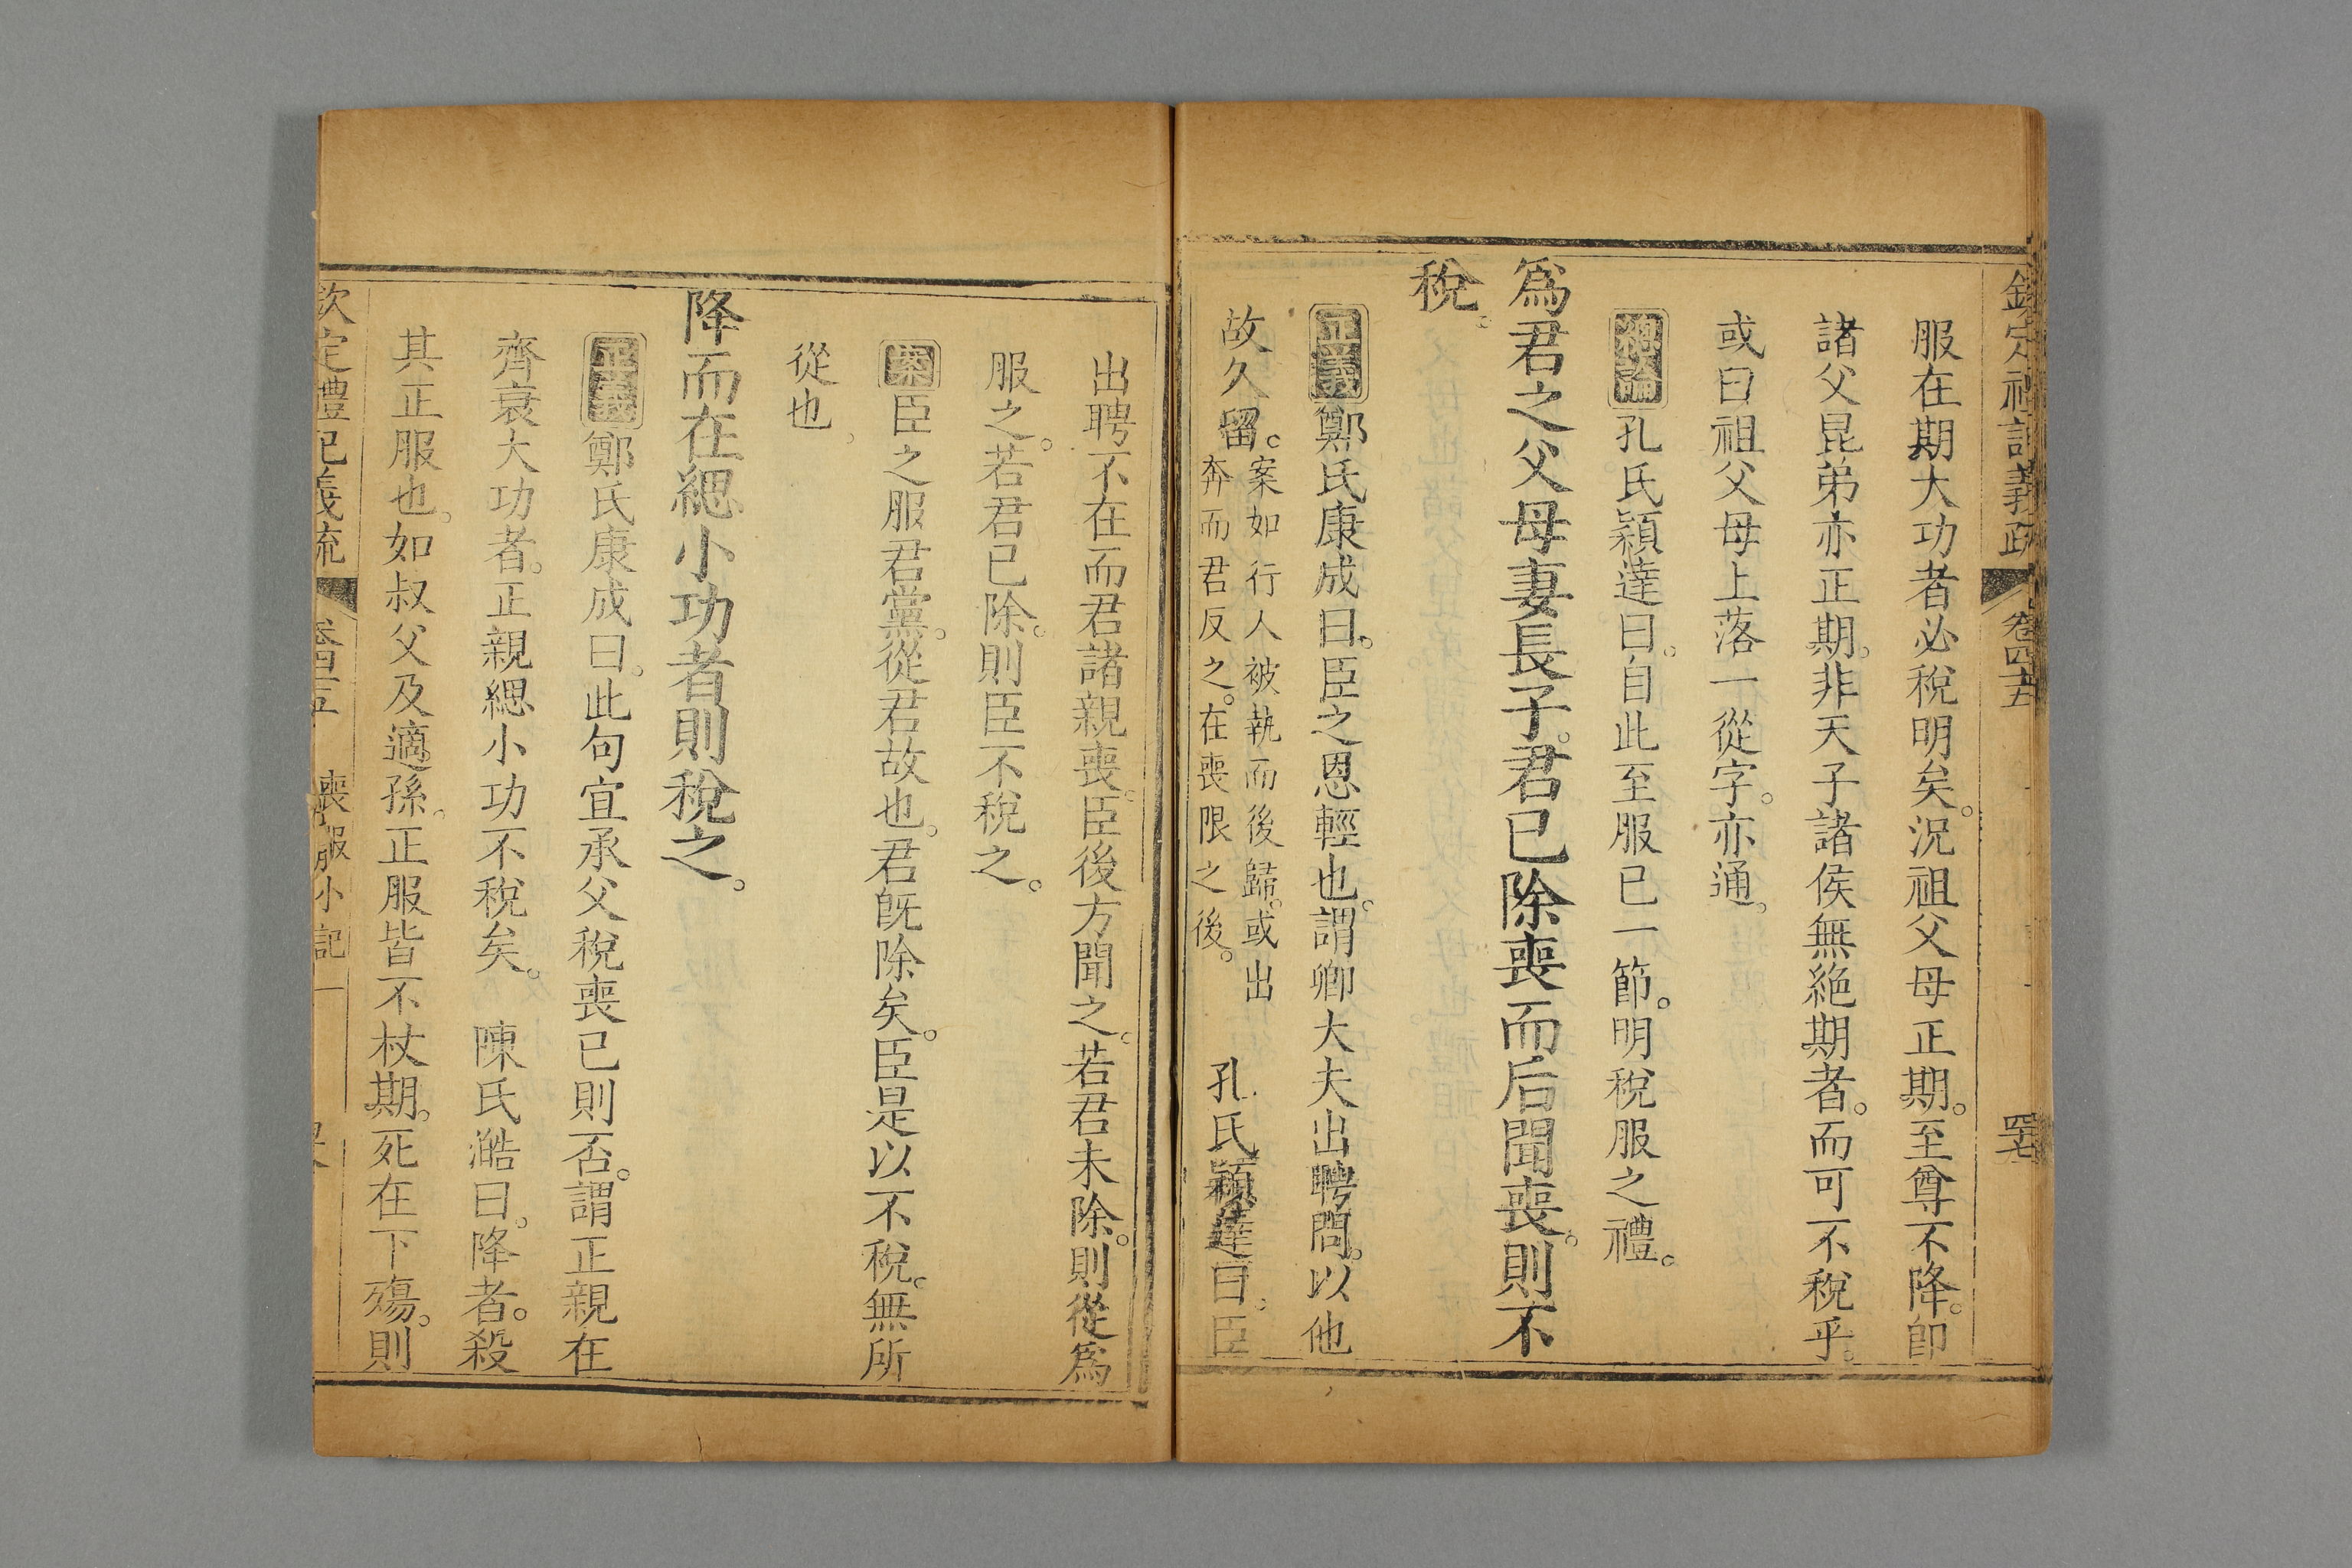 欽定禮記義疏 卷四十五
服在期大功者必稅明矣。況祖父母正期。至尊不降。即
諸父昆弟亦正期。非天子諸侯無絶期者。而可不稅乎。
或曰祖父母上落一從字。亦通。
總論 孔氏穎達曰。自此至服已一節。明稅服之禮。
爲君之父母妻長子。君已除喪而后聞喪。則不
稅。
正義 鄭氏康成曰。臣之恩輕也。謂卿大夫出聘問。以他
故久留。案如行人被執而後歸。或出奔而君反之。在喪限之後。 孔氏穎達曰。臣
出聘不在而君諸親喪。臣後方聞之。若君未除。則從爲
服之。若君已除。則臣不稅之。
案 臣之服君黨。從君故也。君旣除矣。臣是以不稅。無所
從也。
降而在緦小功者則稅之。
正義 鄭氏康成曰。此句宜承父稅喪已則否。謂正親在
齊衰大功者。正親緦小功不稅矣。 陳氏澔曰。降者。殺
其正服也。如叔父及適孫。正服皆不杖期。死在下殤。則
欽定禮記義疏 卷四十五 喪服小記一